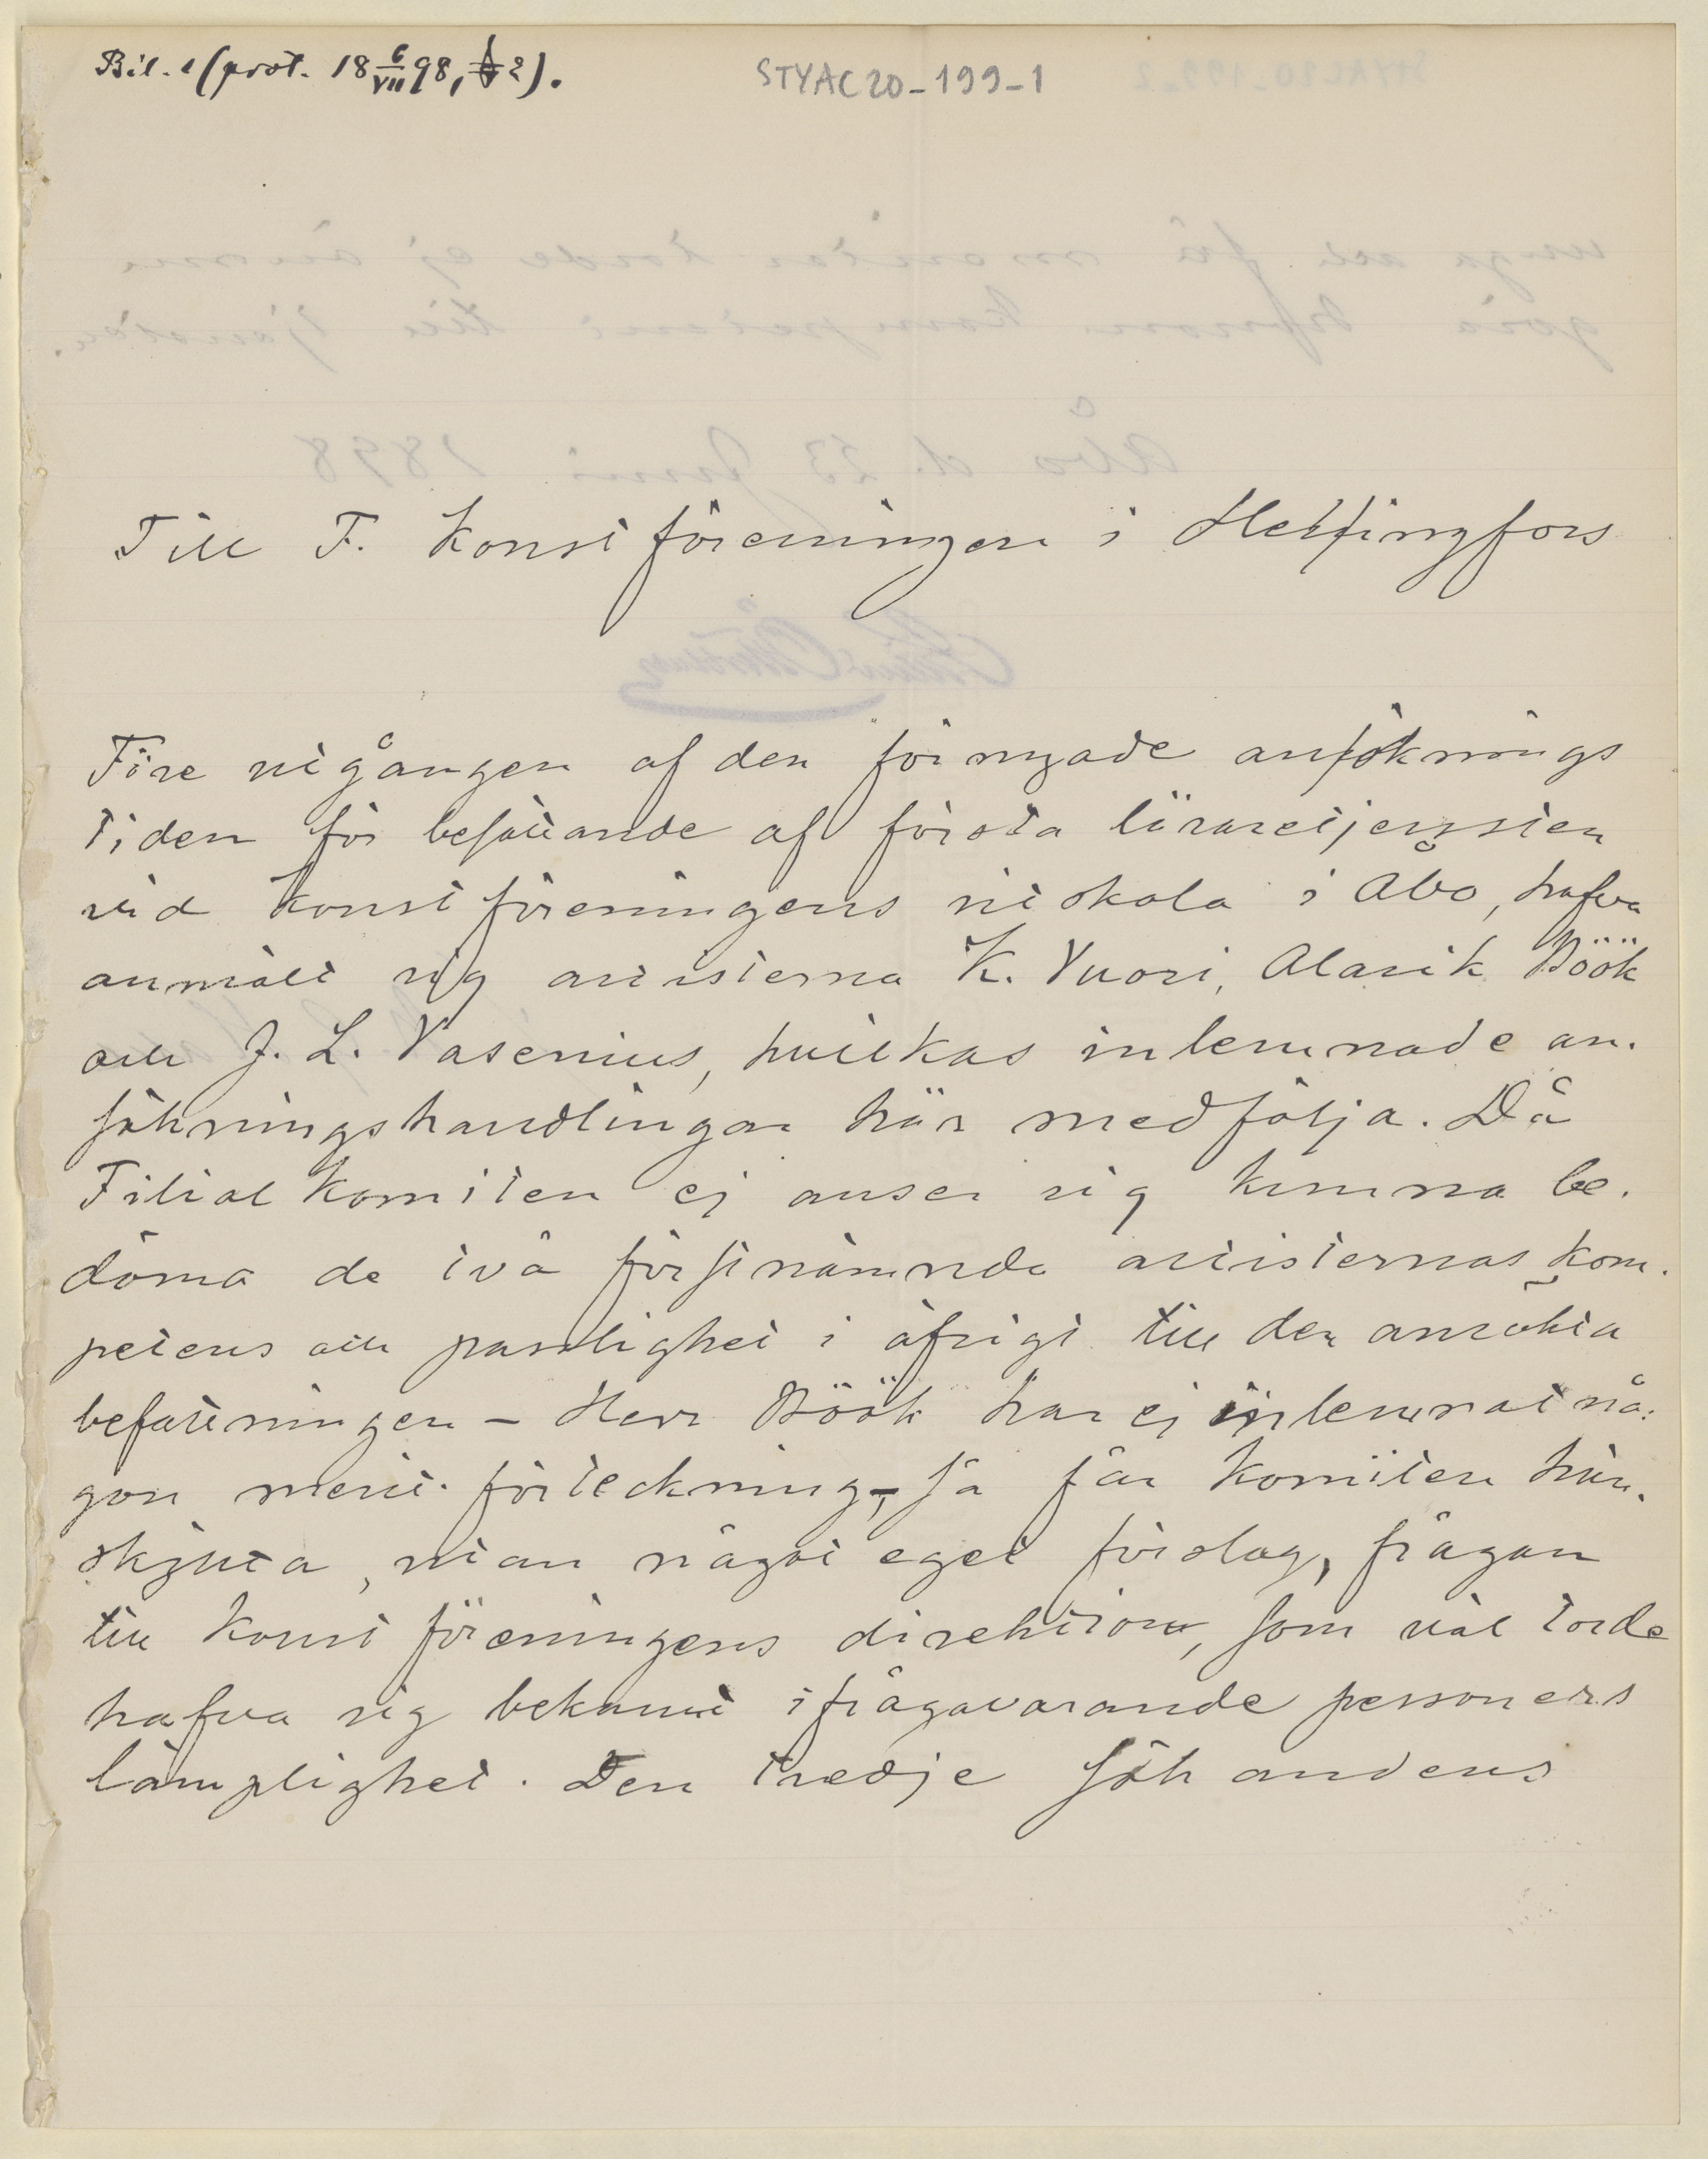 Bil. 1 (prot. 18 6/VII 98, § 2).
STYAC20-199-1
Till F. Konstföreningen i Helsingfors
Före utgången af den förnyade ansöknings
tiden för besättande af första läraretjensten
vid Konstföreningens ritskola i Åbo, hafva
anmält sig artisterna K. Vuori, Alarik Böök
och J. L. Vasenius, hvilkas inlemnade an-
sökningshandlingar här medfölja. Då
Filialkomiten ej anser sig kunna be-
döma de två förstnämnda artisternas kom-
petens och passlighet i öfrigt till den ansökta
befattningen – Herr Böök har ej inlemnat nå-
gon merit-förteckning, – så får Komiten hän-
skjuta, utan något eget förslag, frågan
till Konstföreningens direktion, som väl torde
hafva sig bekant ifrågavarande personers
lämplighet. Den tredje sökandens